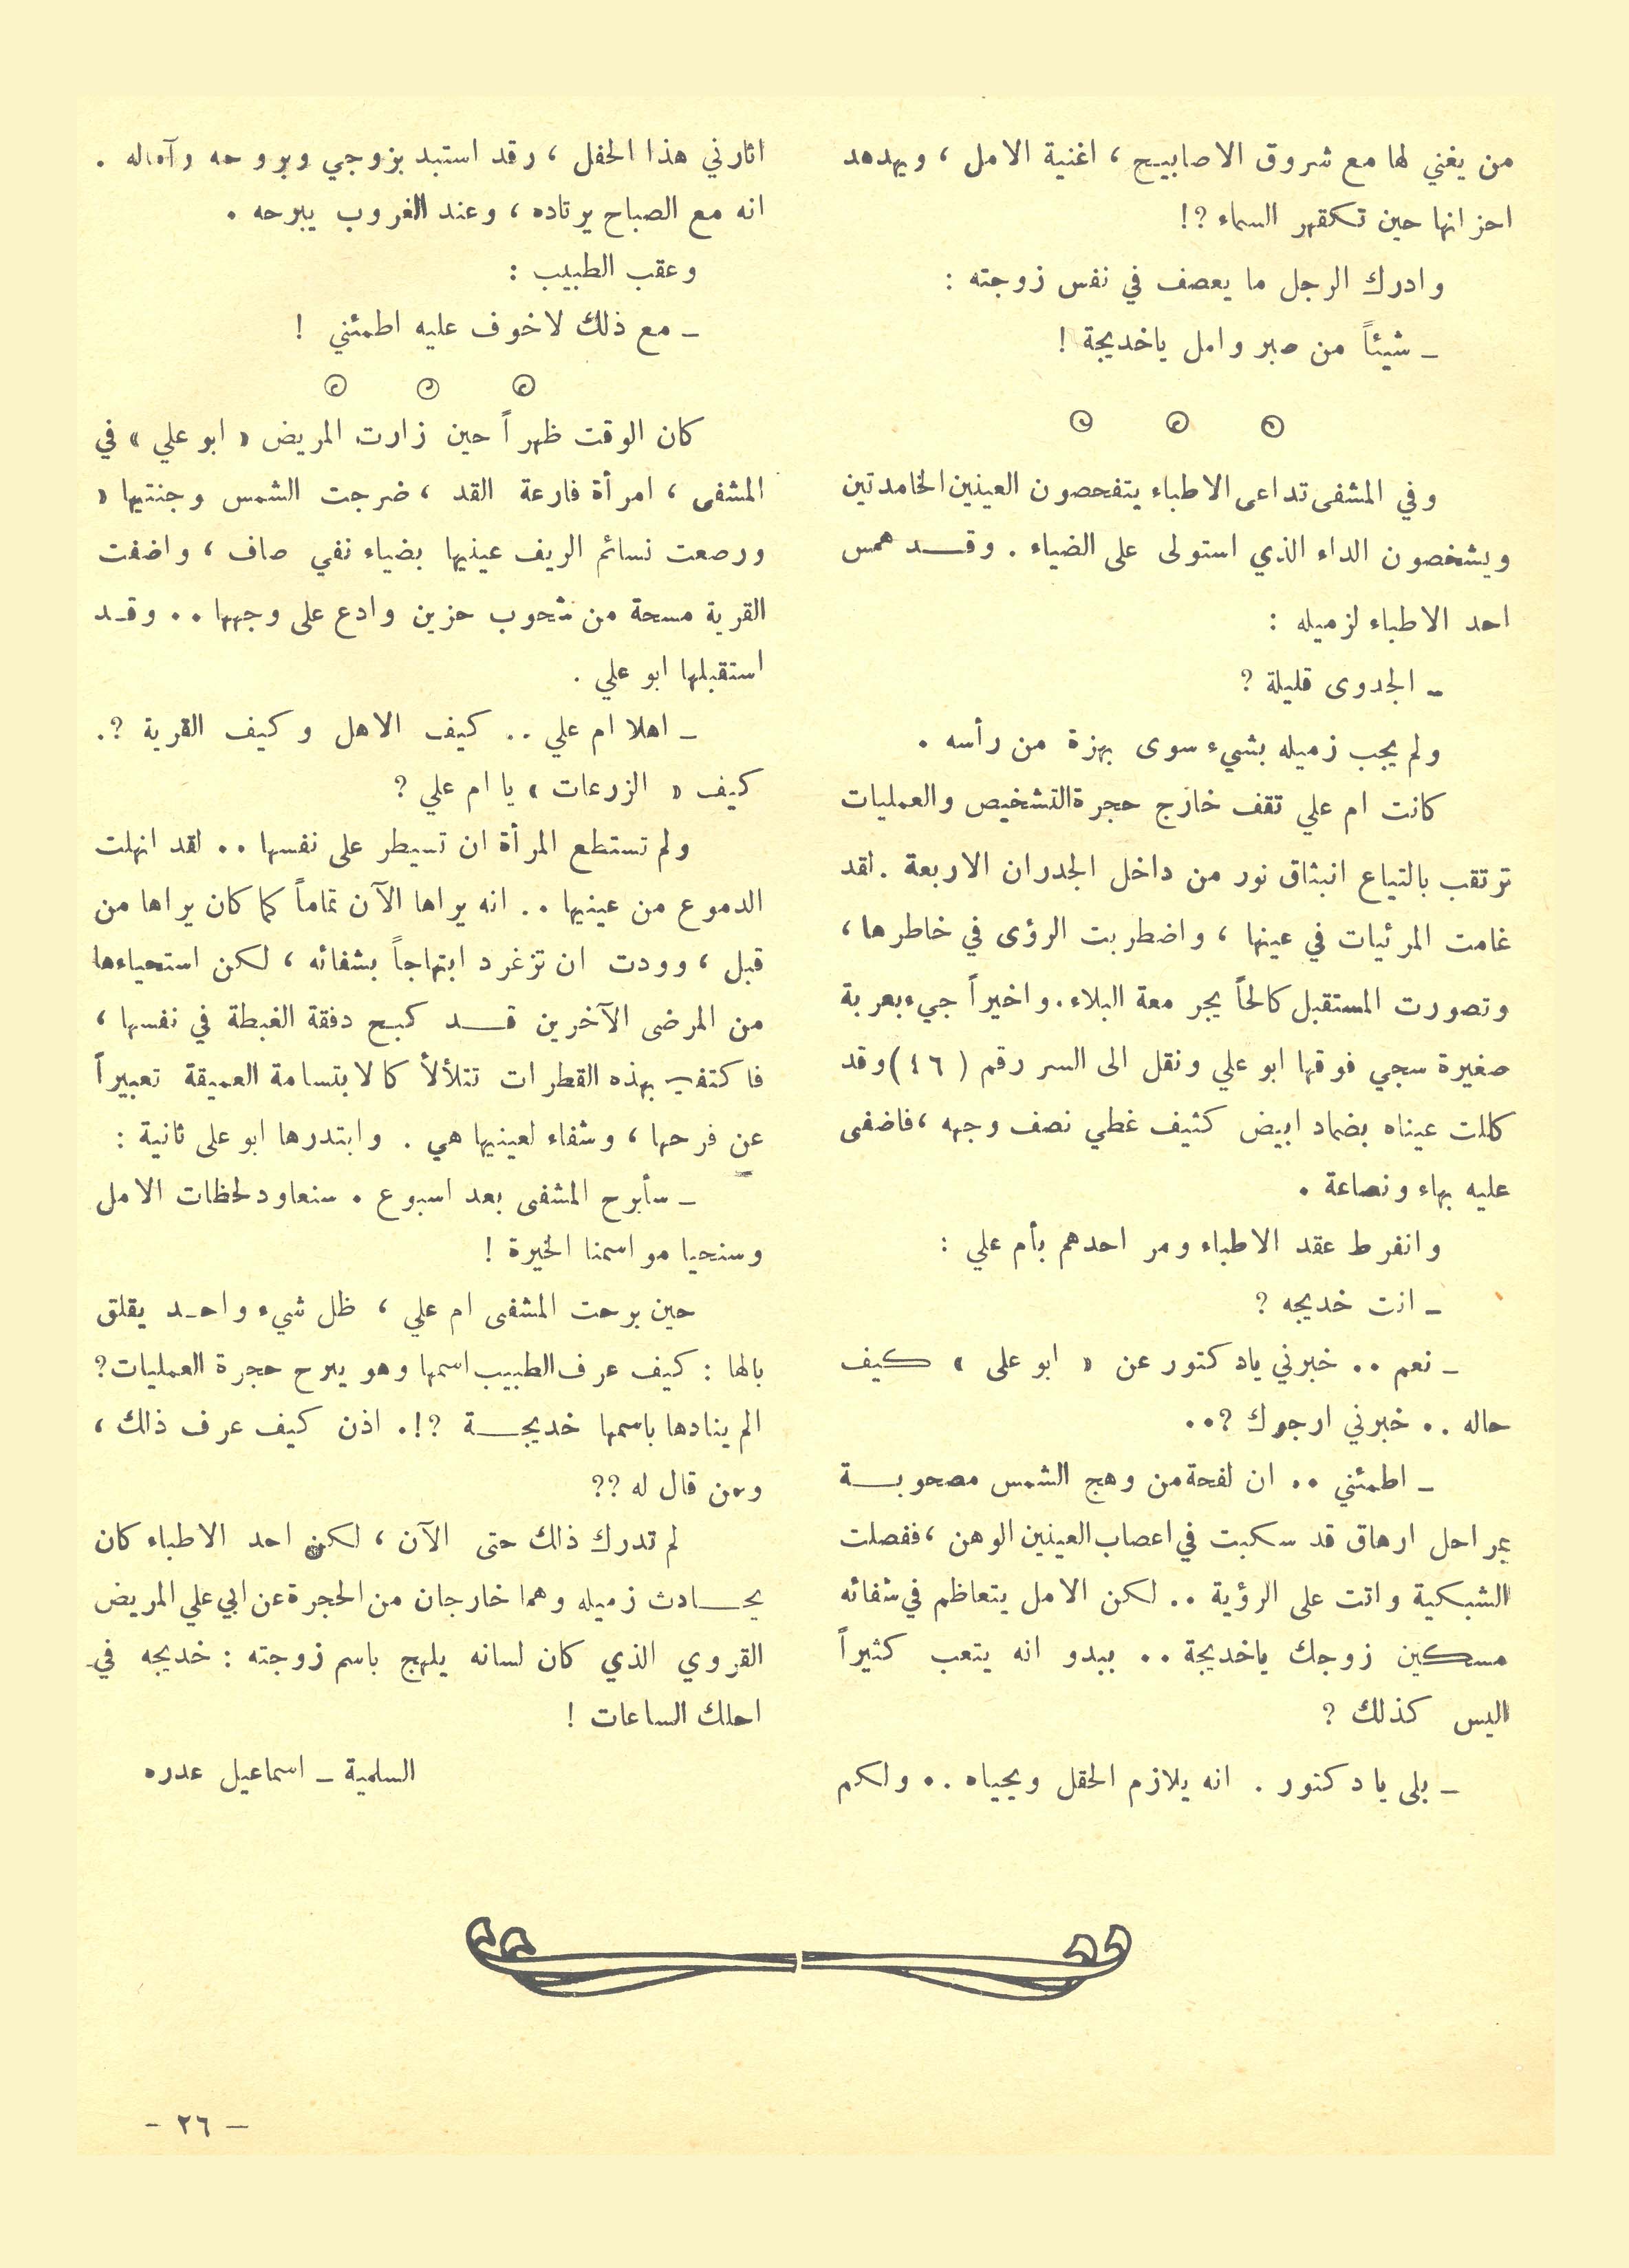 من يغني لها مع شروق الاصابيح ، اغنية الامل ، ويهدهد
احزانها حين تكفهر السماء ؟!
وادرك الرجل ما يعصف في نفس زوجته :
ـ شيئاً من صبر وامل ياخديجة !
وفي المشفى تداعى الاطباء يتفحصون العينين الخامدتين
ويشخصون الداء الذي استولى على الضياء . وقــد همس
احد الاطباء لزميله :
ـ الجدوى قليلة ؟
ولم يجب زميله بشيء سوى بهزة من رأسه .
كانت ام علي تقف خارج حجرة التشخيص والعمليات
ترتقب بالتياع انبثاق نور من داخل الجدران الاربعة . لقد
غامت المرئيات في عينها ، واضطربت الرؤى في خاطرها ،
وتصورت المستقبل كالحاً يجر معة البلاء . واخيراً جيء بعربة
صغيرة سجي فوقها ابو علي ونقل الى السر رقم ( ٤٦ ) وقد
كللت عيناه بضماد ابيض كثيف غطي نصف وجهه ، فاضفى
عليه بهاء ونصاعة .
وانفرط عقد الاطباء ومر احدهم بأم علي :
ـ انت خديجه ؟
ـ نعم .. خبرني يادكتور عن « ابو على » كيف
حاله .. خبرني ارجوك ؟..
ـ اطمئني .. ان لفحة من وهج الشمس مصحوبــة
بمراحل ارهاق قد سكبت في اعصاب العينين الوهن ، ففصلت
الشبكية واتت على الرؤية .. لكن الامل يتعاظم في شفائه
مسكين زوجك ياخديجة .. يبدو انه يتعب كثيراً
اليس كذلك ؟
ـ بلى يا دكتور . انه يلازم الحقل ويحياه .. ولكم
اثارني هذا الحفل ، رقد استبد بزوجي وبروحه وآماله .
انه مع الصباح يرتاده ، وعند الغروب يبرحه .
وعقب الطبيب :
ـ مع ذلك لاخوف عليه اطمئني !
كان الوقت ظهراً حين زارت المريض « ابو علي » في
المشفى ، امرأة فارعة القد ، ضرجت الشمس وجنتيها «
ورصعت نسائم الريف عينيها بضياء نفي صاف ، واضفت
القرية مسحة من شحوب حزين وادع على وجهها .. وقـد
استقبلها ابو علي .
ـ اهلا ام علي .. كيف الاهل وكيف القرية ؟.
كيف « الزرعات » يا ام علي ؟
ولم تستطع المرأة ان تسيطر على نفسها .. لقد انهلت
الدموع من عينيها .. انه يراها الآن تماماً كما كان يراها من
قبل ، وودت ان تزغرد ابتهاجاً بشفائه ، لكن استحياءها
من المرضى الآخرين قــد كبح دفقة الغبطة في نفسها ،
فاكتفت بهذه القطرات تتلألأ كالابتسامة العميقة تعبيراً
عن فرحها ، وشفاء لعينيها هي . وابتدرها ابو على ثانية :
ـ سأبرح المشفى بعد اسبوع . سنعاود لحظات الامل
وسنحيا مواسمنا الخيرة !
حين برحت المشفى ام علي ، ظل شيء واحـد يقلق
بالها : كيف عرف الطبيب اسمها وهو يبرح حجرة العمليات ؟
الم ينادها باسمها خديجــة ؟!. اذن كيف عرف ذلك ،
ومن قال له ؟؟
لم تدرك ذلك حتى الآن ، لكن احد الاطباء كان
يحــادث زميله وهما خارجان من الحجرة عن ابي علي المريض
القروي الذي كان لسانه يلهج باسم زوجته : خديجه في
احلك الساعات !
السلمية ـ اسماعيل عدره
ـ ٢٦ ـ